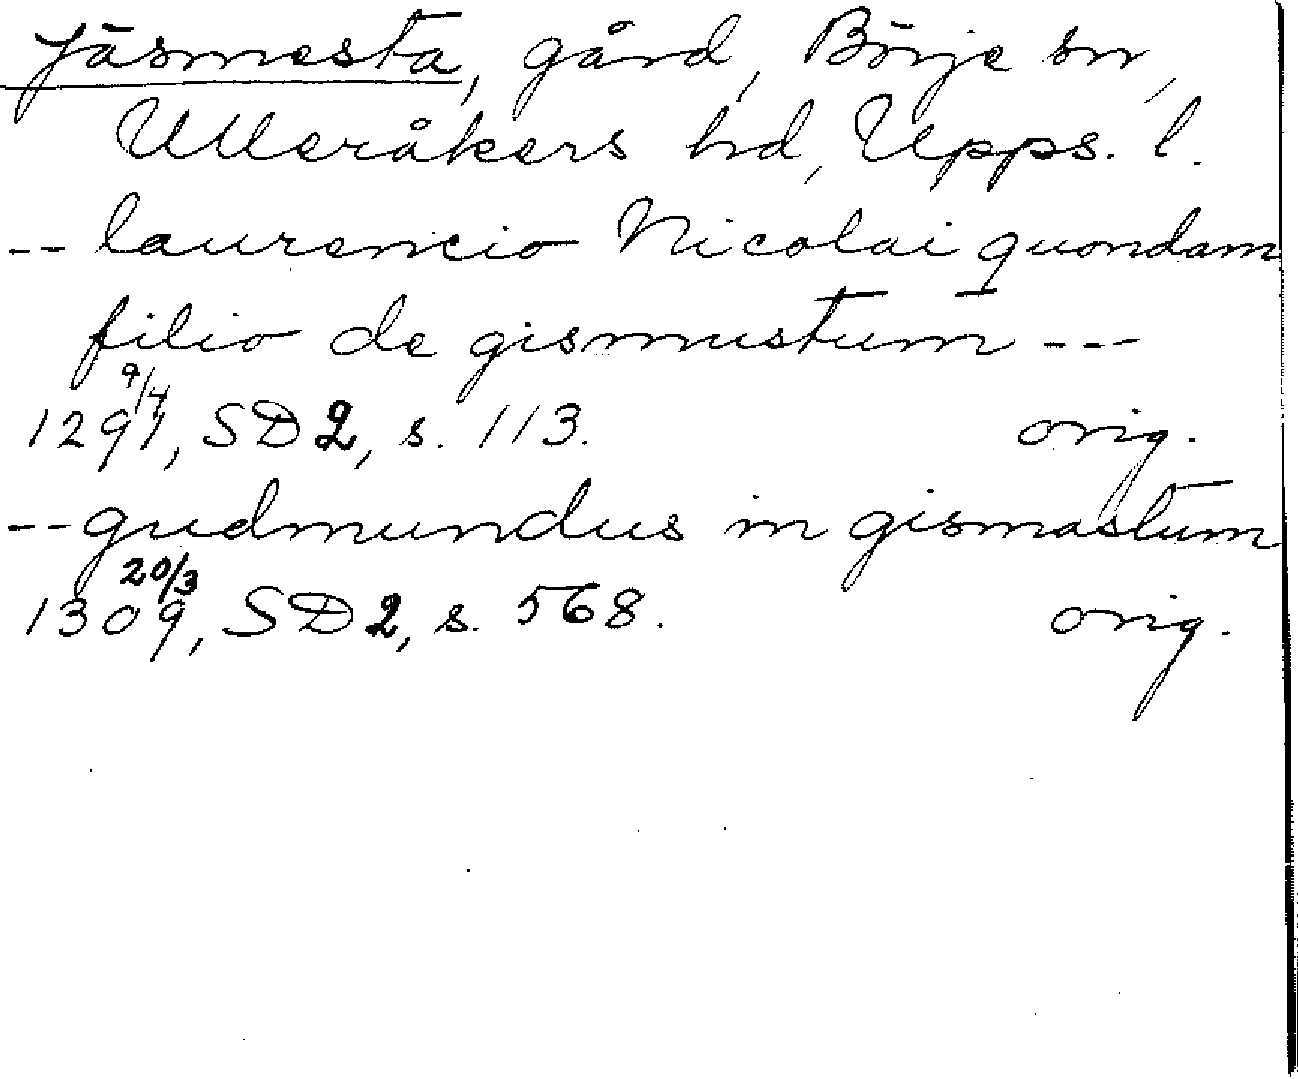 Jäsmesta, gård, Börje sn,
Ulleråkers hd, Upps. l.
-- laurencio Nicolai quondam
filio de gismustum ---
9/4
1291, SD 2, s. 113. orig.
-- gudmundus in gismastum
20/3
1309, SD 2, s. 568. orig.